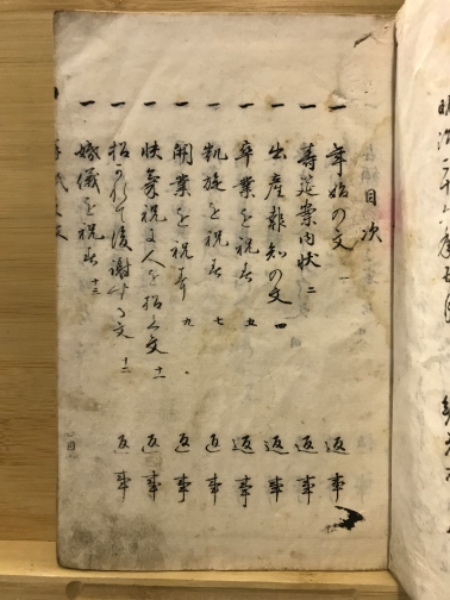 目次
一 年始の文 一 返事
一 寿筵案内状 二 返事
一 出産報知の文 返事
一 卒業を祝ふ 五 返事
一 凱旋を祝ふ 七 返事
一 開業を祝す 九 返事
一 快気祝に人を招く文 十一 返事
一 招かれて後謝する文 十二 返事
婚儀を祝ふ 十三